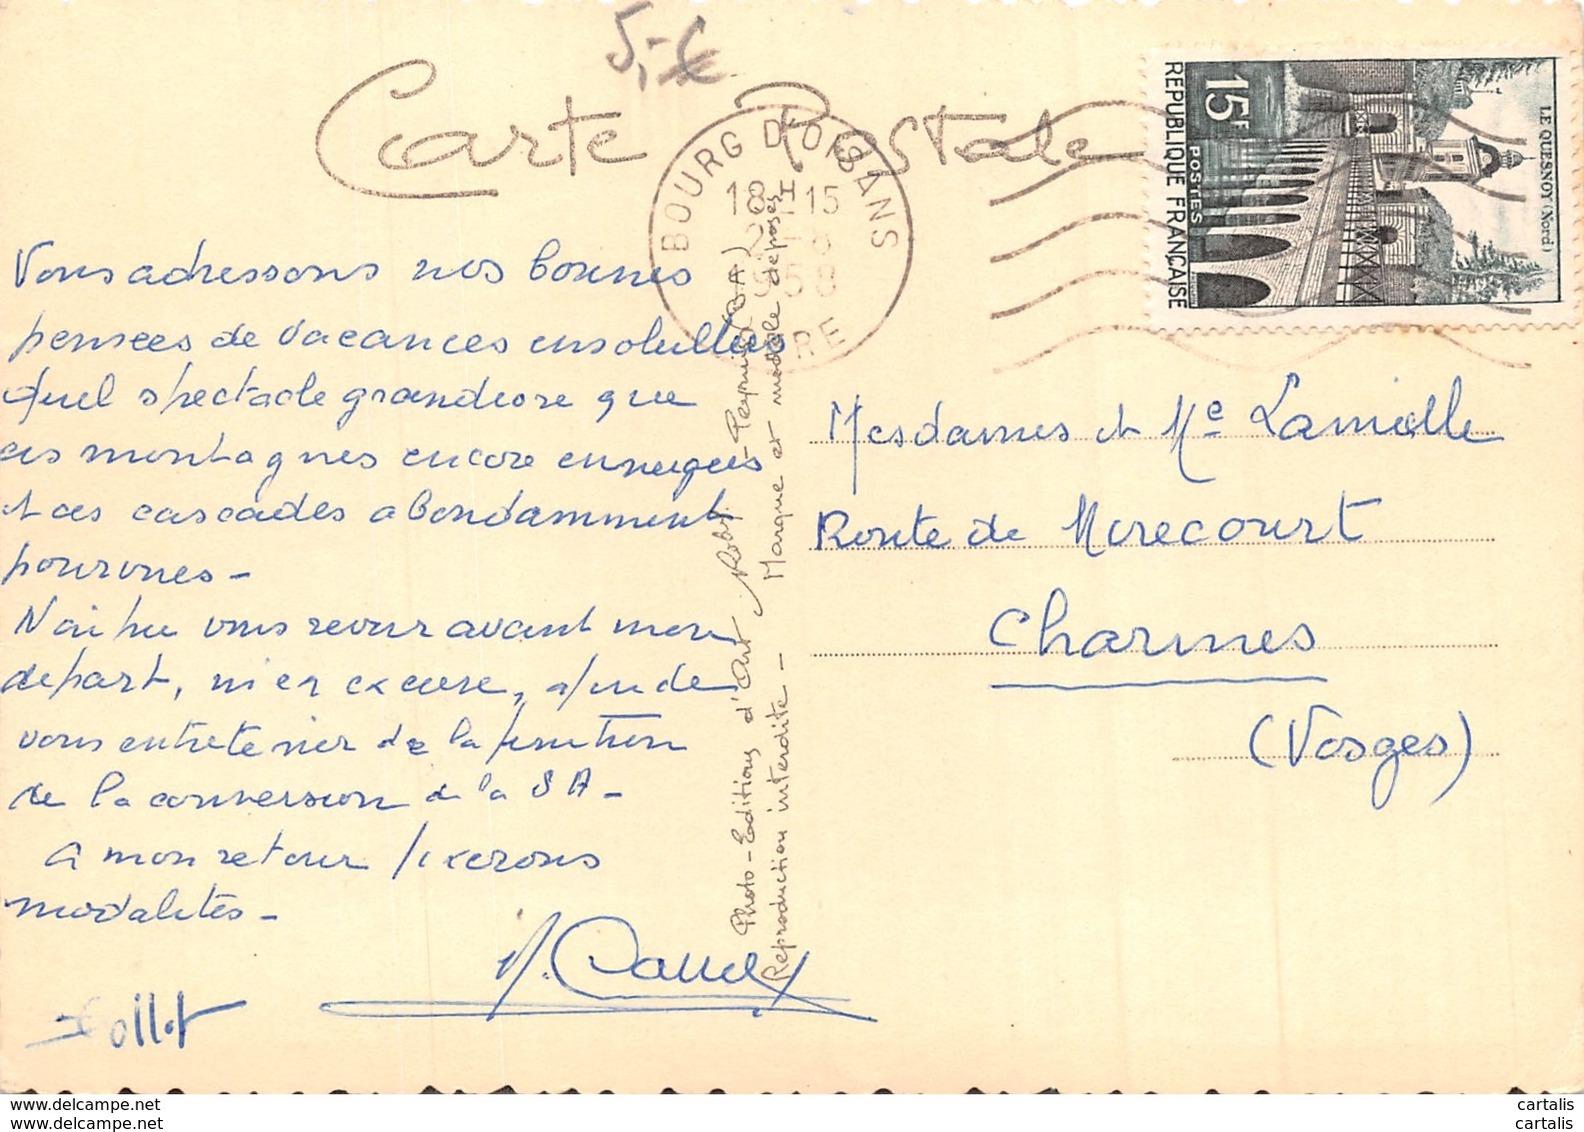 5,-€
Carte Postale
BOURG D'OISANS
18H15
2-8
1958
ISERE
15F
POSTES
REPUBLIQUE FRANÇAISE
LE QUESNOY (Nord)
Vous adressons nos bonnes
pensées de vacances ensoleillées
Quel spectacle grandiose que
ces montagnes encore enneigées
et ces cascades abondamment
pourvues -
N'ai pu vous revoir avant mon
départ, m'en excuse, afin de
vous entretenir de la question
de la conversion de la SA -
a mon retour fixerons
modalités -
Collot
Photo-Editions d'Art Roby. - Peyruis (B.A)
Reproduction interdite - Marque et modèle déposés
Mesdames et Me Lamielle
Route de Mirecourt
Charmes
(Vosges)
cartalis
cartalis
cartalis
cartalis